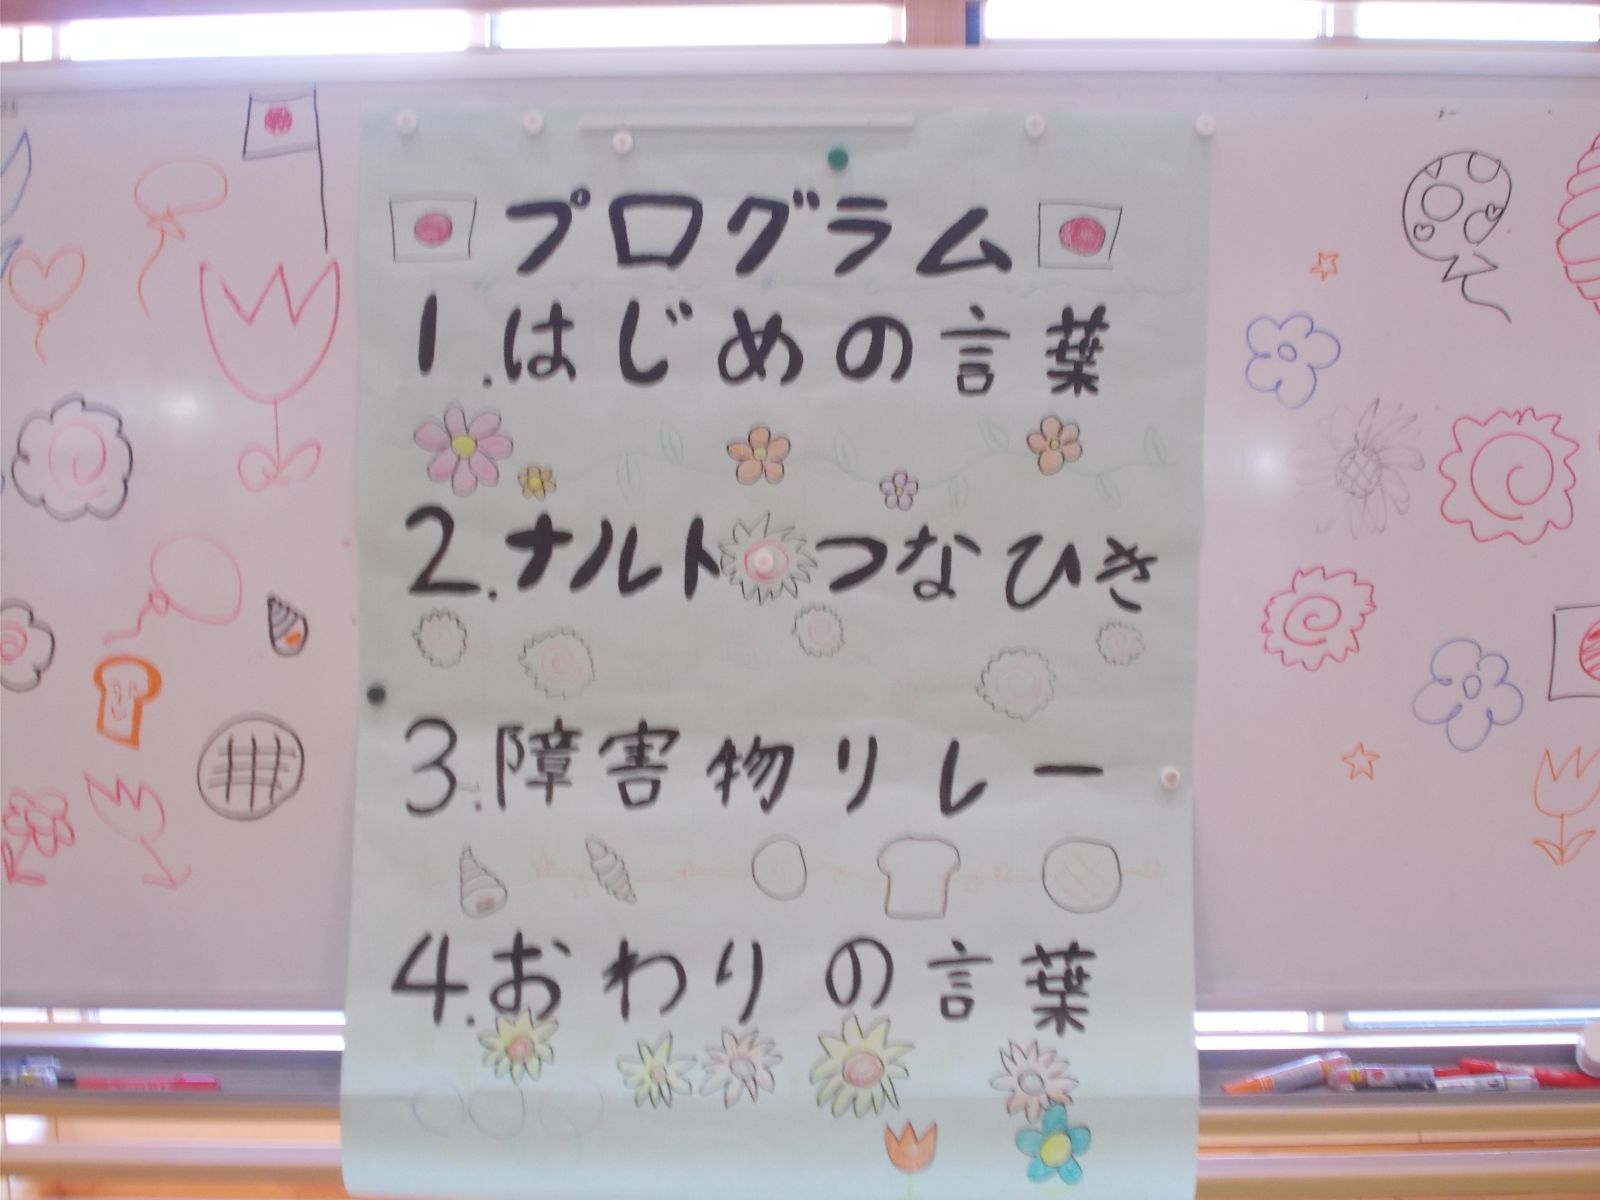 プログラム
1.はじめの言葉
2.ナルトつなひき
3.障害物リレー
4.おわりの言葉